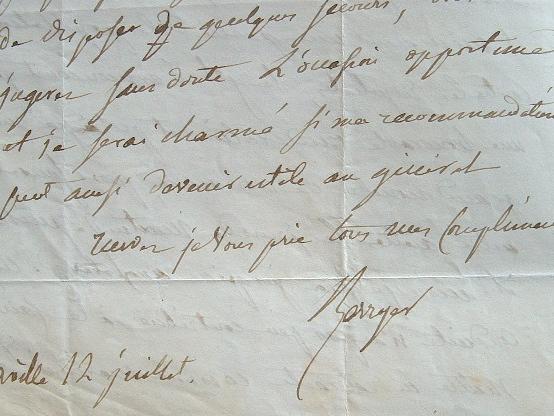 de disposer de quelques secours,
jugerez sans doute l'occasion opportune
et je serai charmé si ma recommandation
peut ainsi devenir utile au général
recevez je vous prie tous mes complimen
Berryer
ville 12 juillet.